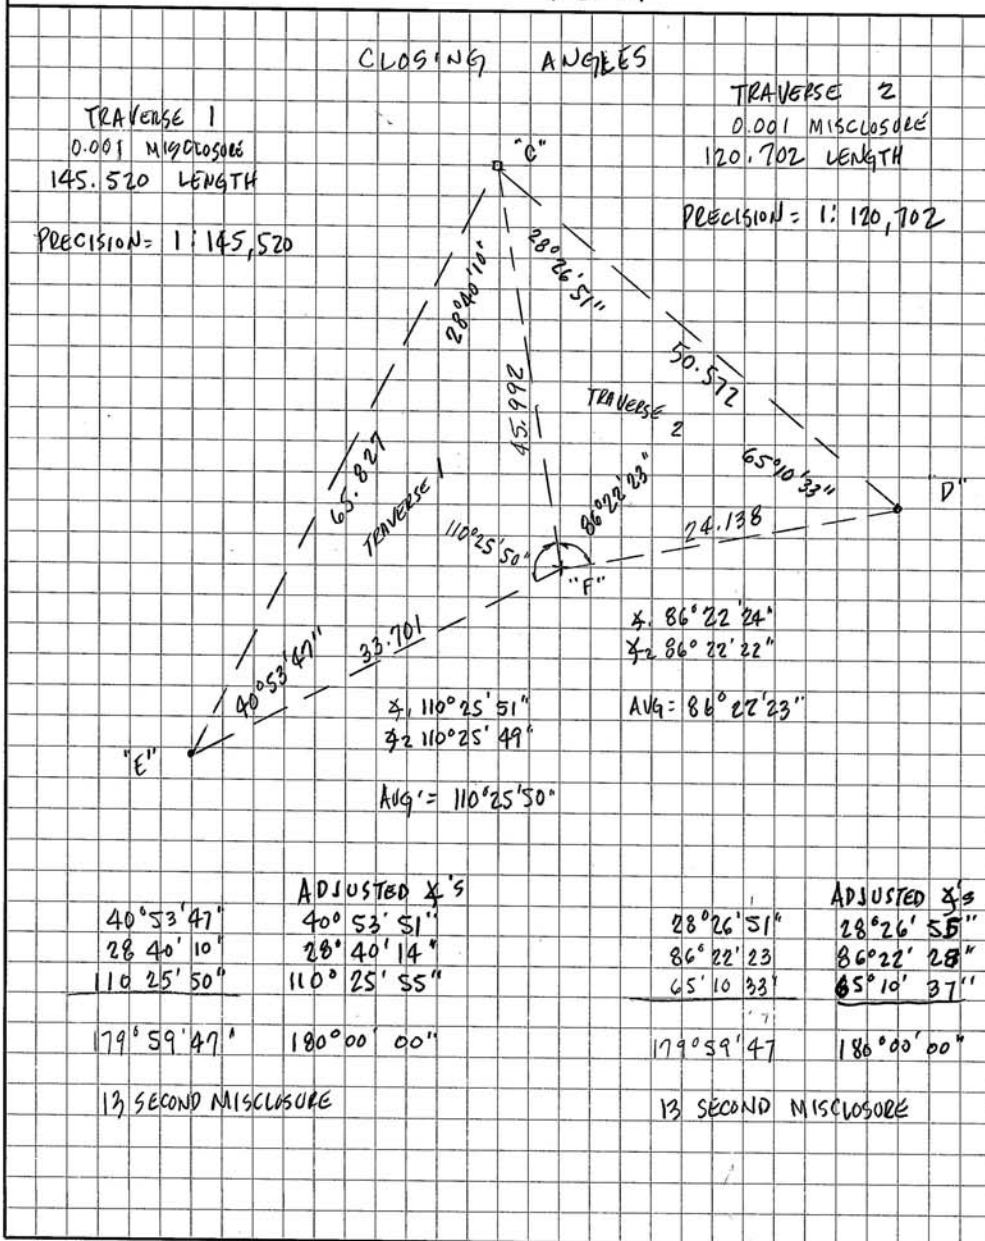 CLOSING ANGLES
TRAVERSE 1
0.001 MISCLOSURE
145.520 LENGTH
PRECISION= 1:145,520
TRAVERSE 2
0.001 MISCLOSURE
120.702 LENGTH
PRECISION= 1:120,702
"C"
28°40'10"
28°26'51"
50.572
45.992
TRAVERSE 2
65.827
TRAVERSE 1
65°10'33"
"D"
110°25'50"
86°22'23"
24.138
"F"
33.701
40°53'47"
"E"
∡1 86°22'24"
∡2 86°22'22"
AVG= 86°22'23"
∡1 110°25'51"
∡2 110°25'49"
AVG'= 110°25'50"
ADJUSTED ∡'S
40°53'47" 40°53'51"
28 40'10" 28°40'14"
110 25'50" 110°25'55"
179°59'47" 180°00'00"
13 SECOND MISCLOSURE
ADJUSTED ∡'s
28°26'51" 28°26'55"
86°22'23 86°22'28"
65°10'33" 65°10'37"
179°59'47 180°00'00"
13 SECOND MISCLOSURE